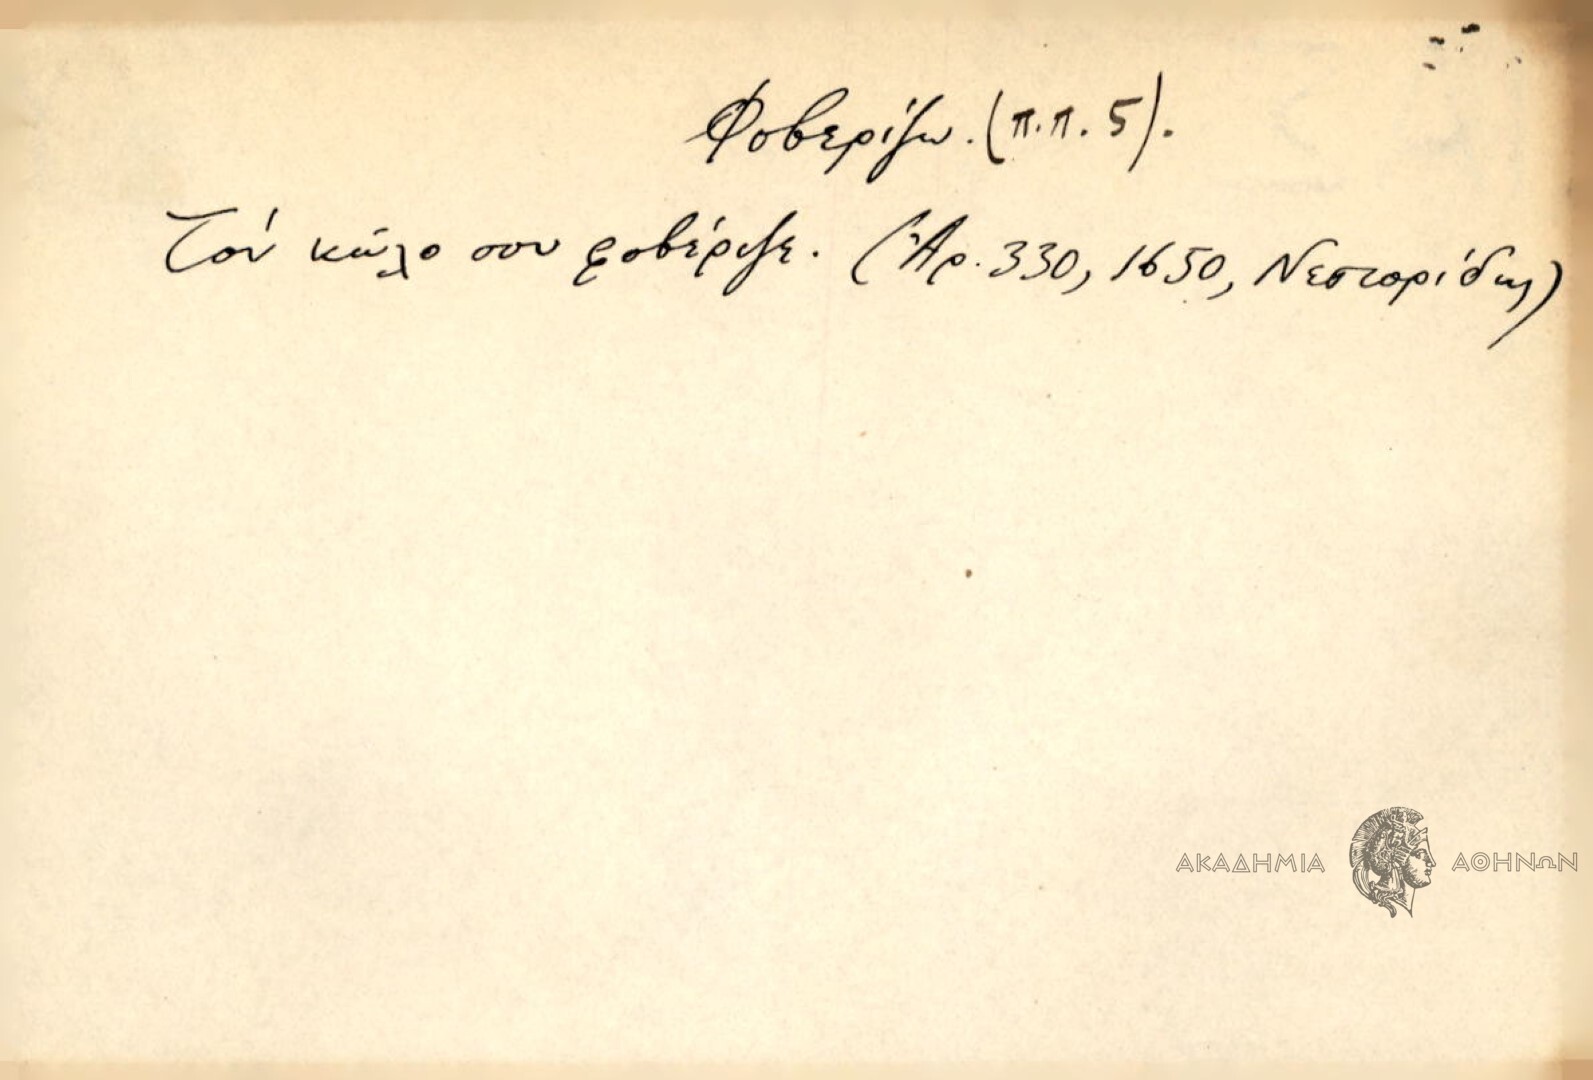 Φοβερίζω. (π.π. 5).
Τόν κῶλο σου φοβέριζε. (Ἀρ. 330, 1650, Νεστορίδης)
ΑΚΑΔΗΜΙΑ ΑΘΗΝΩΝ